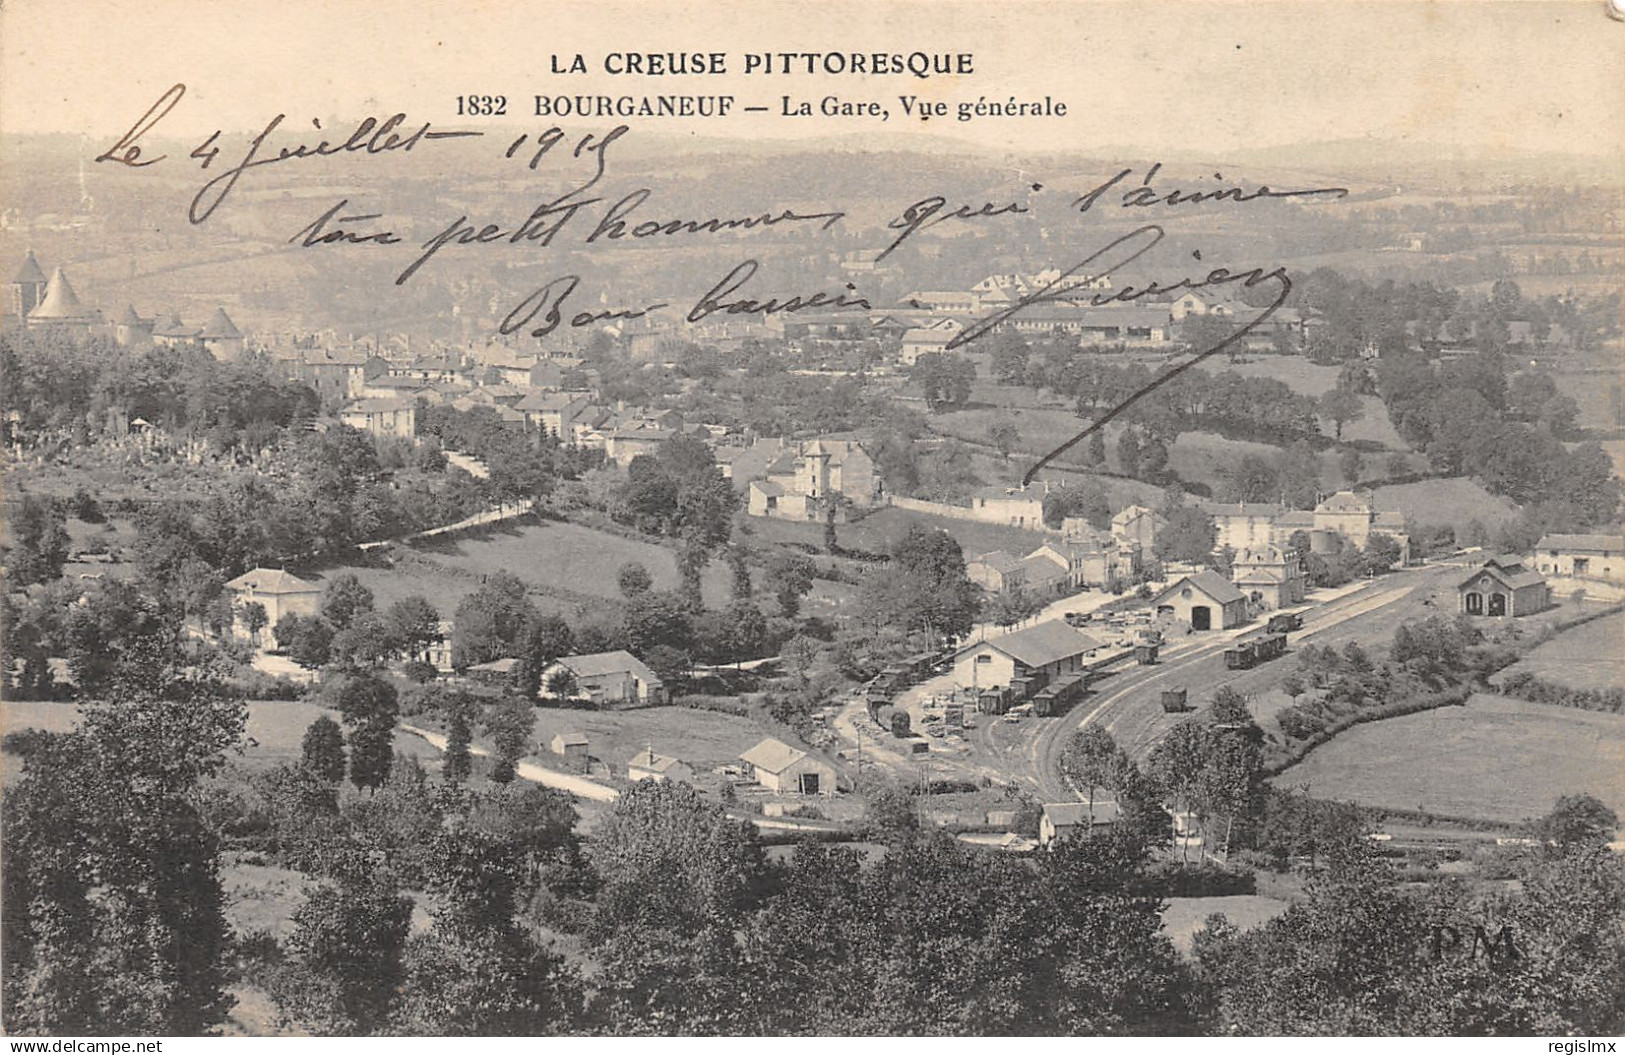 LA CREUSE PITTORESQUE
1832 BOURGANEUF — La Gare, Vue générale
Le 4 Juillet 1915
ton petit homme qui t'aime
Bon baiser
PM
www.delcampe.net
regislmx